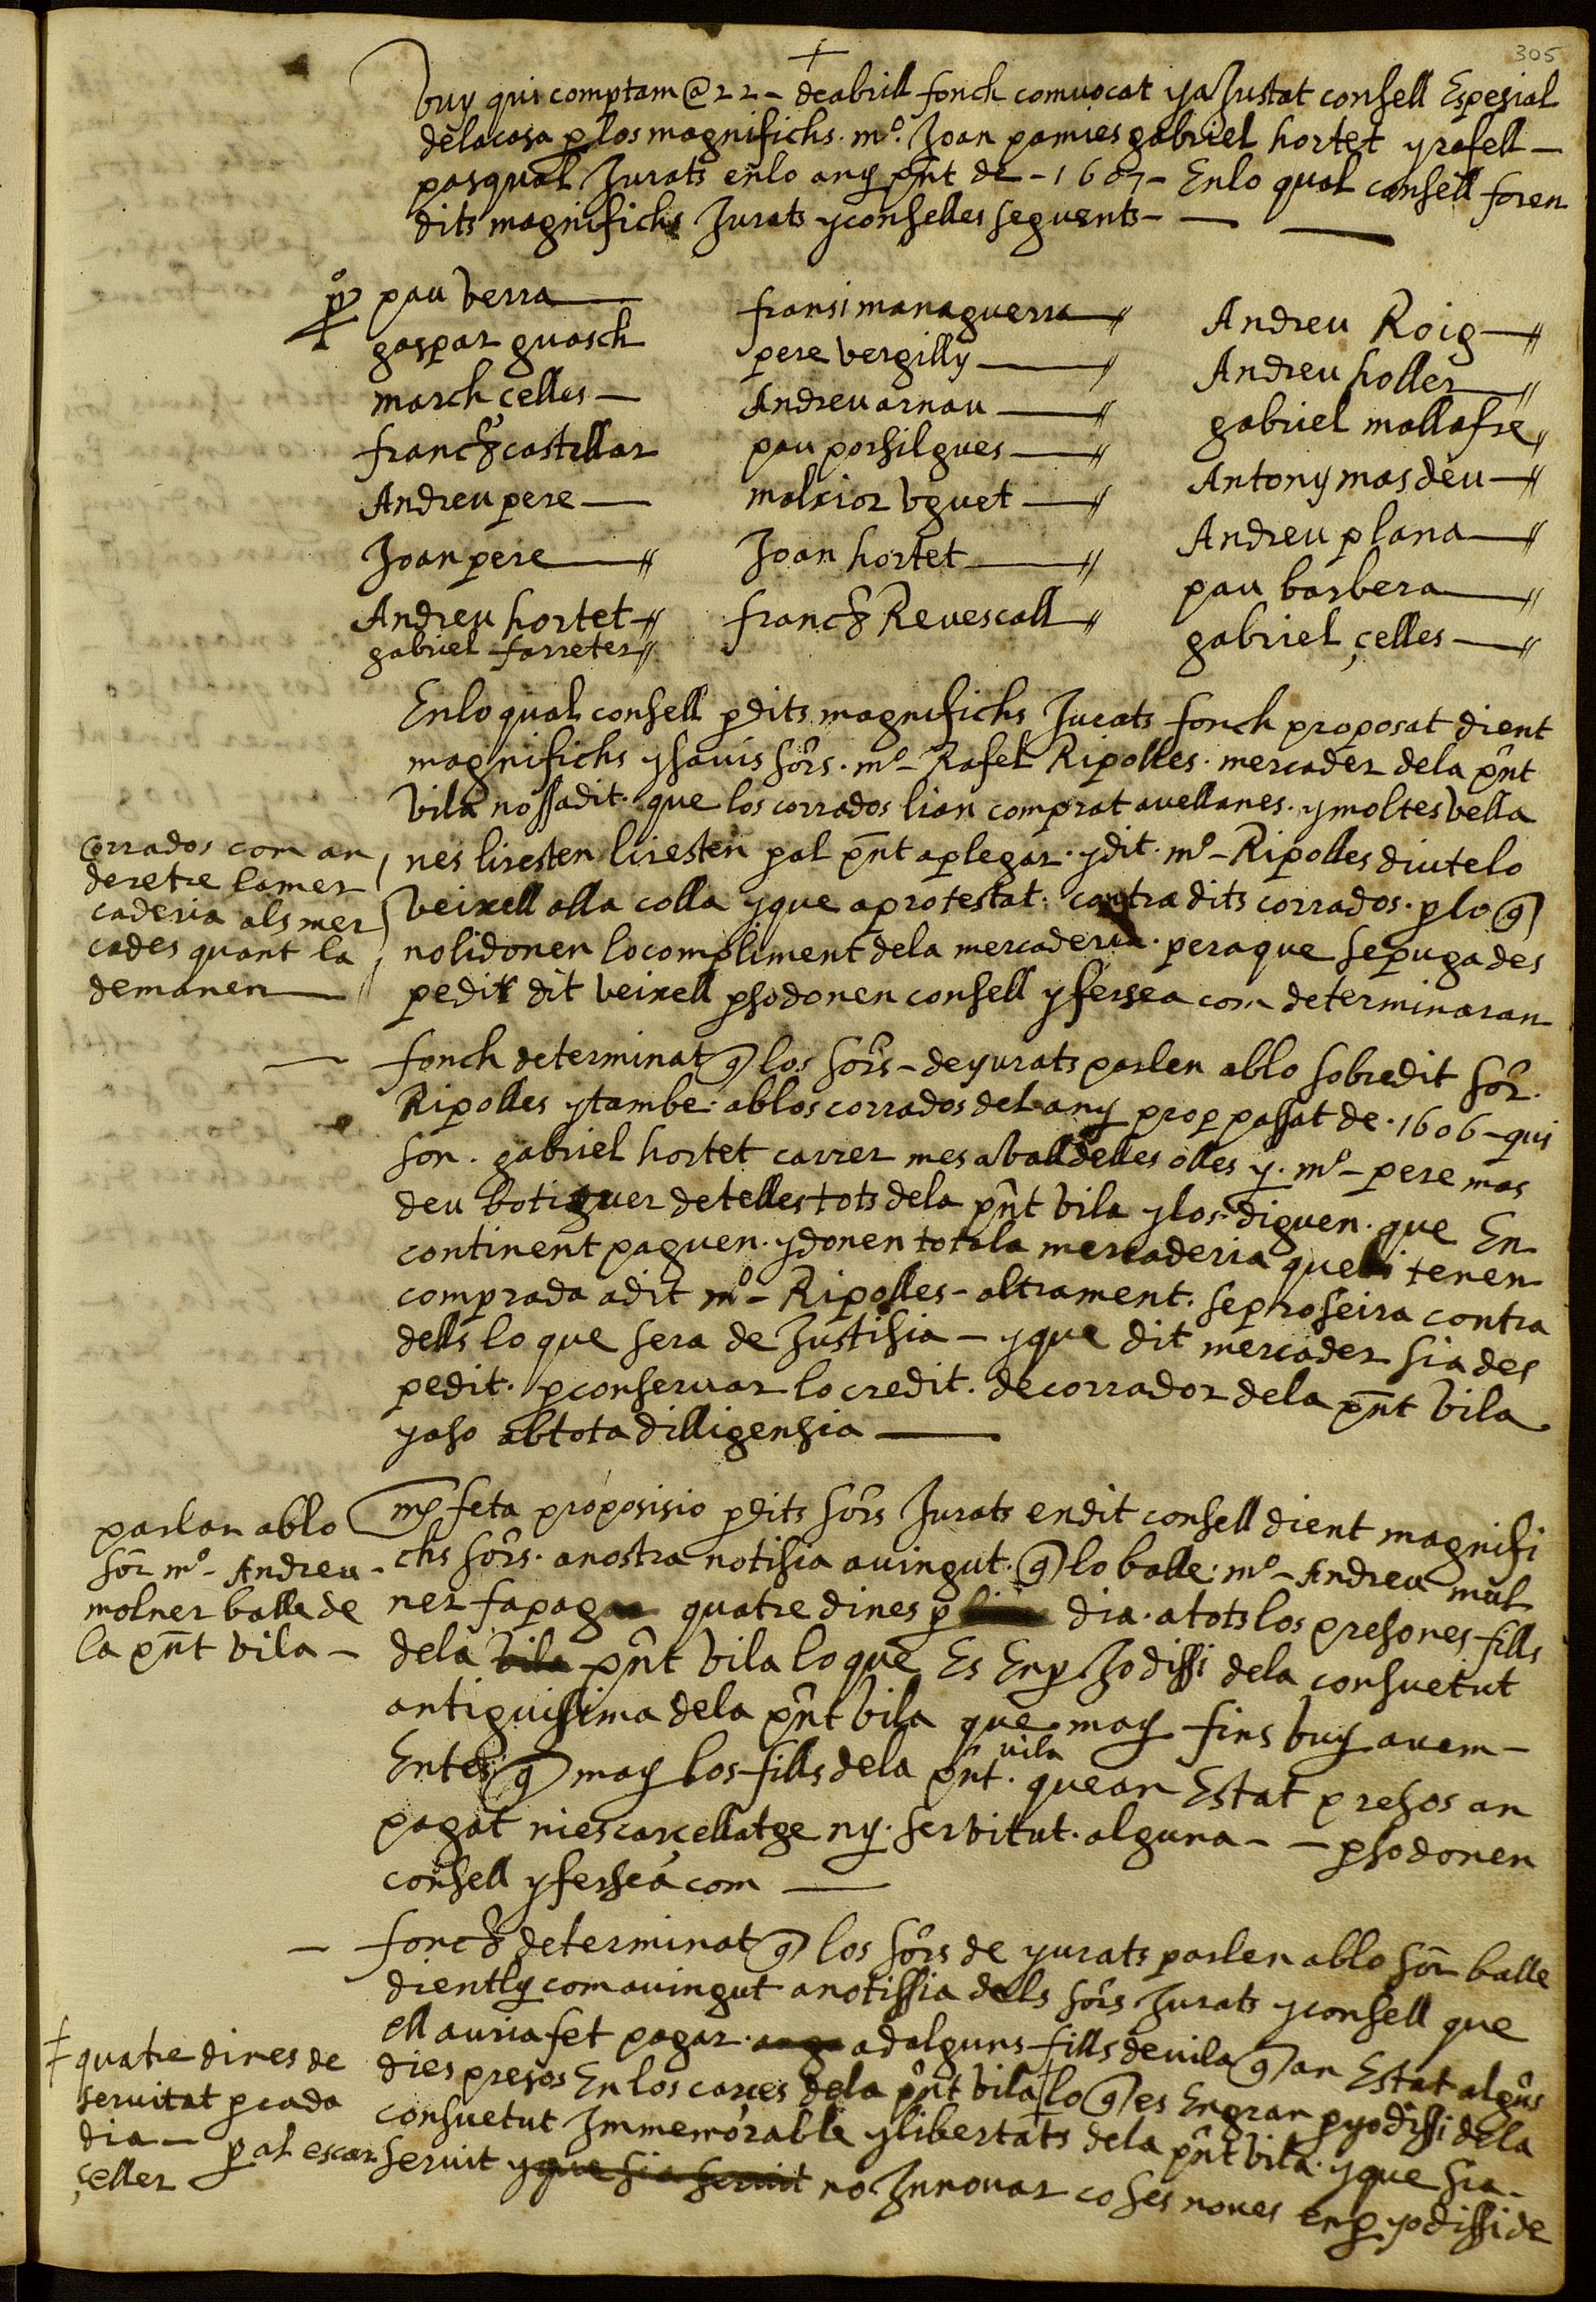 305
buy qui comptam @ 22 - de abrill fonch comvocat y a Justat consell Espesial
dela casa p los magnifichs. mº. Joan pamies gabriel hortet y rafell -
pasqual Jurats enlo any pnt de - 1607 - Enlo qual consell foren
dits magnifichs Jurats y conselles seguents -
pº pau verra
gaspar guasch
march çelles -
franch castellar
Andreu pere -
Joan pere
Andreu hortet
gabriel farreter
fransi managuerra
pere vergilly
Andreu arnau
pau porsilgues
malxior vguet
Joan hortet
franch Revescall
Andreu Roig
Andreu holler
gabriel mallafre
Antony mas deu
Andreu plana
pau barbera
gabriel çelles
Enlo qual consell p dits magnifichs Jurats fonch proposat dient
magnifichs y savis sors. mº - Rafel Ripolles. mercader dela pnt
vila nos adit. que los corrados lian comprat avellanes. y moltes vella
nes liresten liresten pal pnt aplegar. y dit. mº - Ripolles diu telo
veixell alla colla y que a protestat. contra dits corrados. p lo q
no li donen lo compliment dela mercaderia. pera que se puga des
pedir dit veixell p so donen consell y fersea com determinaran
corrados com an
de retre la mer
caderia als mer
cades quant la
demanen
fonch determinat q los sors - de yurats parlen ab lo sobredit sor.
Ripolles y tambe. ab los corrados del any prop passat de. 1606 - qui
son. gabriel hortet carrer mes avall delles olles y. mº - pere mas
deu botiguer de telles tots dela pnt vila y los diguen. que En
continent paguen. y donen tota la mercaderia que li tenen
comprada a dit mº - Ripolles - altrament. se proseira contra
dells lo que sera de Justisia - y que dit mercader sia des
pedit. p conservar lo credit. de corrador dela pnt vila
y aso ab tota dilligensia
mes feta proposisio p dits sors Jurats en dit consell dient magnifi
chs sors. a nostra notisia a vingut. q lo balle. mº - Andreu mul
ner fa pagar quatre dines p dia. a tots los presones fills
dela vila pnt vila lo que Es En p Jodissi dela consuetut
antiguissima dela pnt vila que may fins buy avem -
Entes q may los fills dela pnt. vila que an Estat presos an
pagat ni escarcellatge ny. servitut. alguna - - p so donen
consell y fersea com
parlar ab lo
sor mº - Andreu
molner balle de
la pnt vila -
- fonch determinat q los sors de yurats parlen ab lo sor balle
dient ly com a vingut a notissia dels sors Jurats y consell que
ell auria fet pagar. ad alguns fills de vila q an Estat alguns
dies presos En los carces dela pnt vila ‡ lo q es En gran p yodissi dela
consuetut Immemorable y libertats dela pnt vila. y que sia -
servit y que sia servit no Innovar coses noves en p yodissi de
‡ quatre dines de
servitut p cada
dia - p al escar
çeller